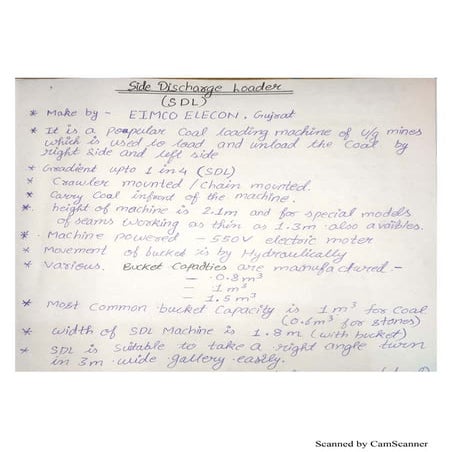 Side Discharge Loader
(SDL)
* Make by - EIMCO ELECON, Gujrat
* It is a popular Coal loading machine of u/g mines
which is used to load and unload the Coal by
right side and left side
* Gradient upto 1 in 4 (SDL)
* Crawler mounted / chain mounted.
* Carry Coal infront of the machine.
* height of machine is 2.1m and for special models
of seams working as thin as 1.3m also availbles.
* Machine powered - 550V electric moter
* Movement of bucket is by Hydraulically
* Various Bucket Capacities are manufactured -
- 0.8 m³
- 1 m³
- 1.5 m³
* Most Common bucket Capacity is 1 m³ for Coal
(0.6m³ for stones)
* width of SDL Machine is 1.8 m (with bucket)
* SDL is Suitable to take a right angle turn
in 3m wide gallery easily.
Scanned by CamScanner